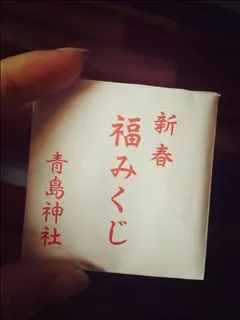 新春
福みくじ
青島神社